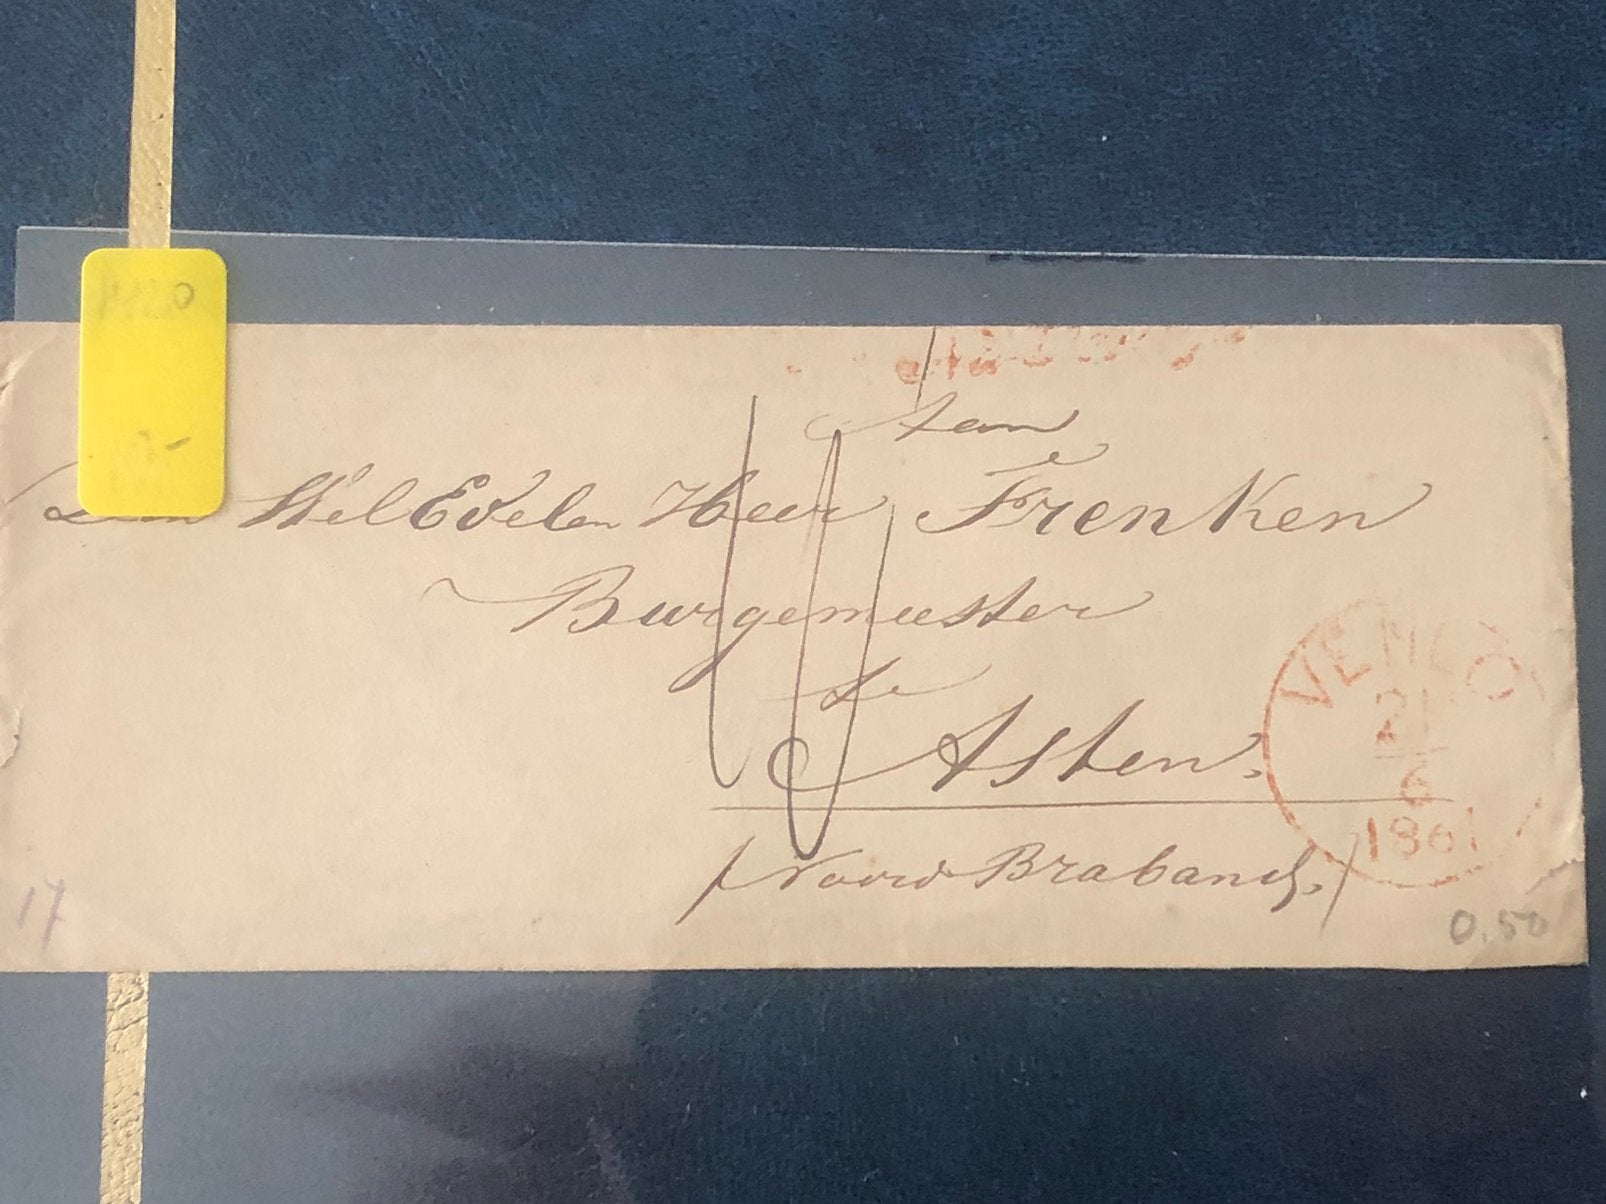 Aan
Den WelEdelen Heer Frenken
Burgemeester
te
Asten.
/Noord Braband./
VENLO
21
6
1861
17
0.50